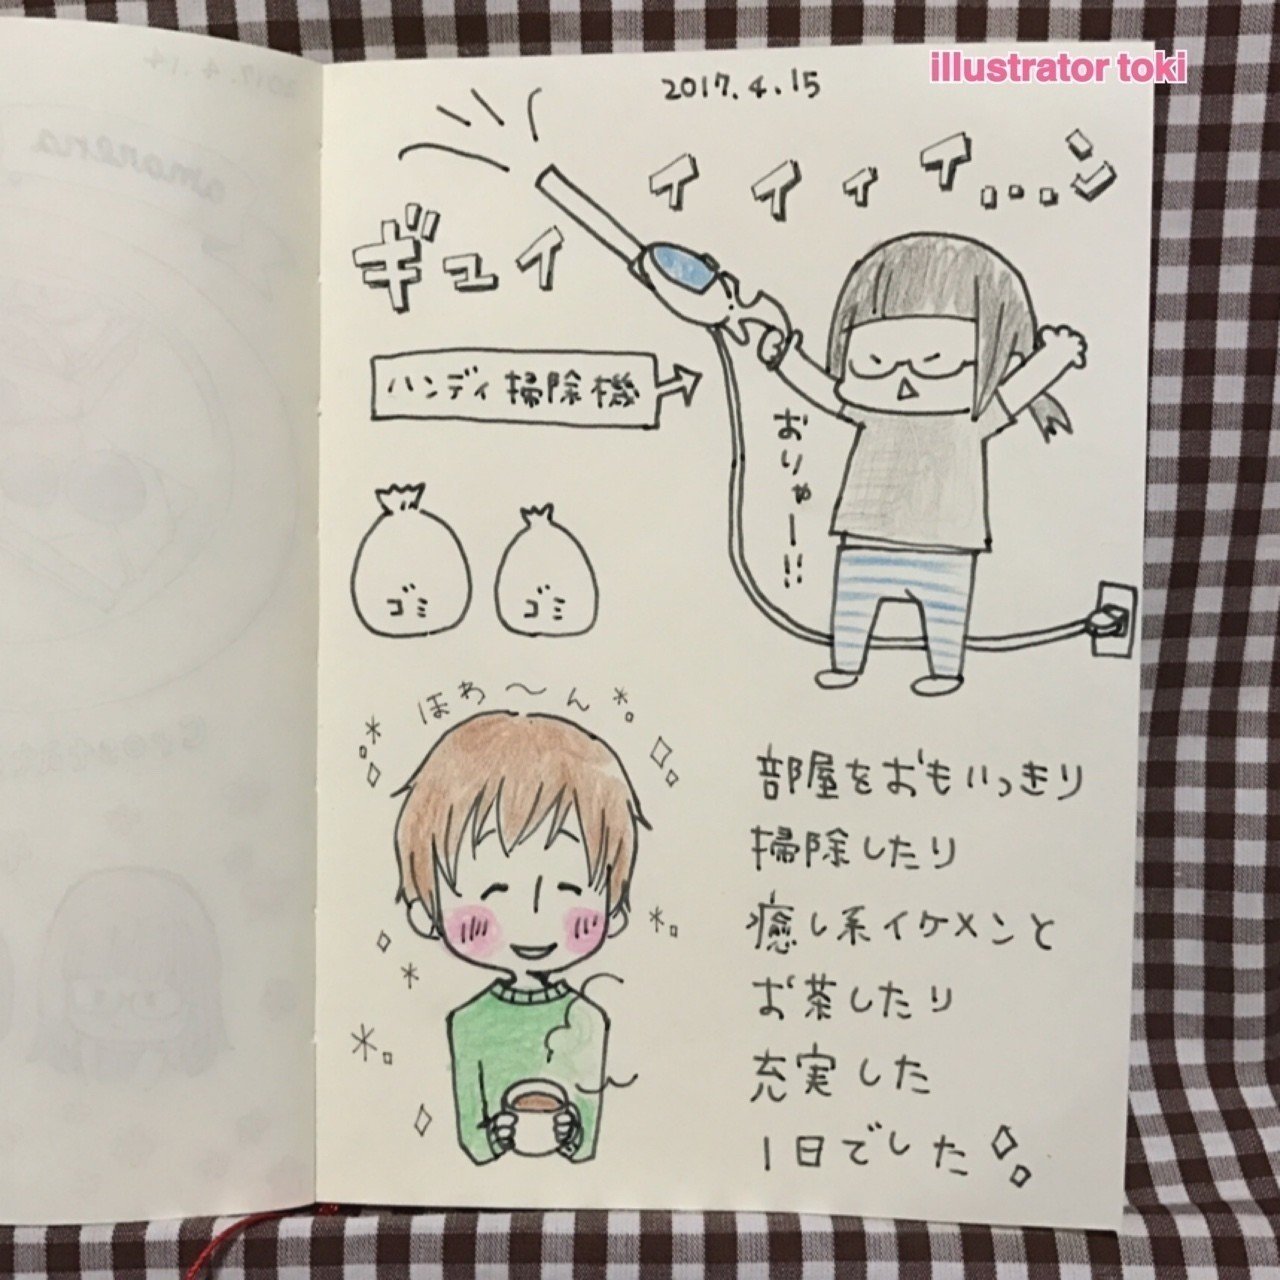 illustrator toki
2017.4.15
ギュイイイィイ...ン
ハンディ掃除機
おりゃー!!
ゴミ
ゴミ
ほわ〜ん
部屋をおもいっきり
掃除したり
癒し系イケメンと
お茶したり
充実した
1日でした
2017.4.14
amorena